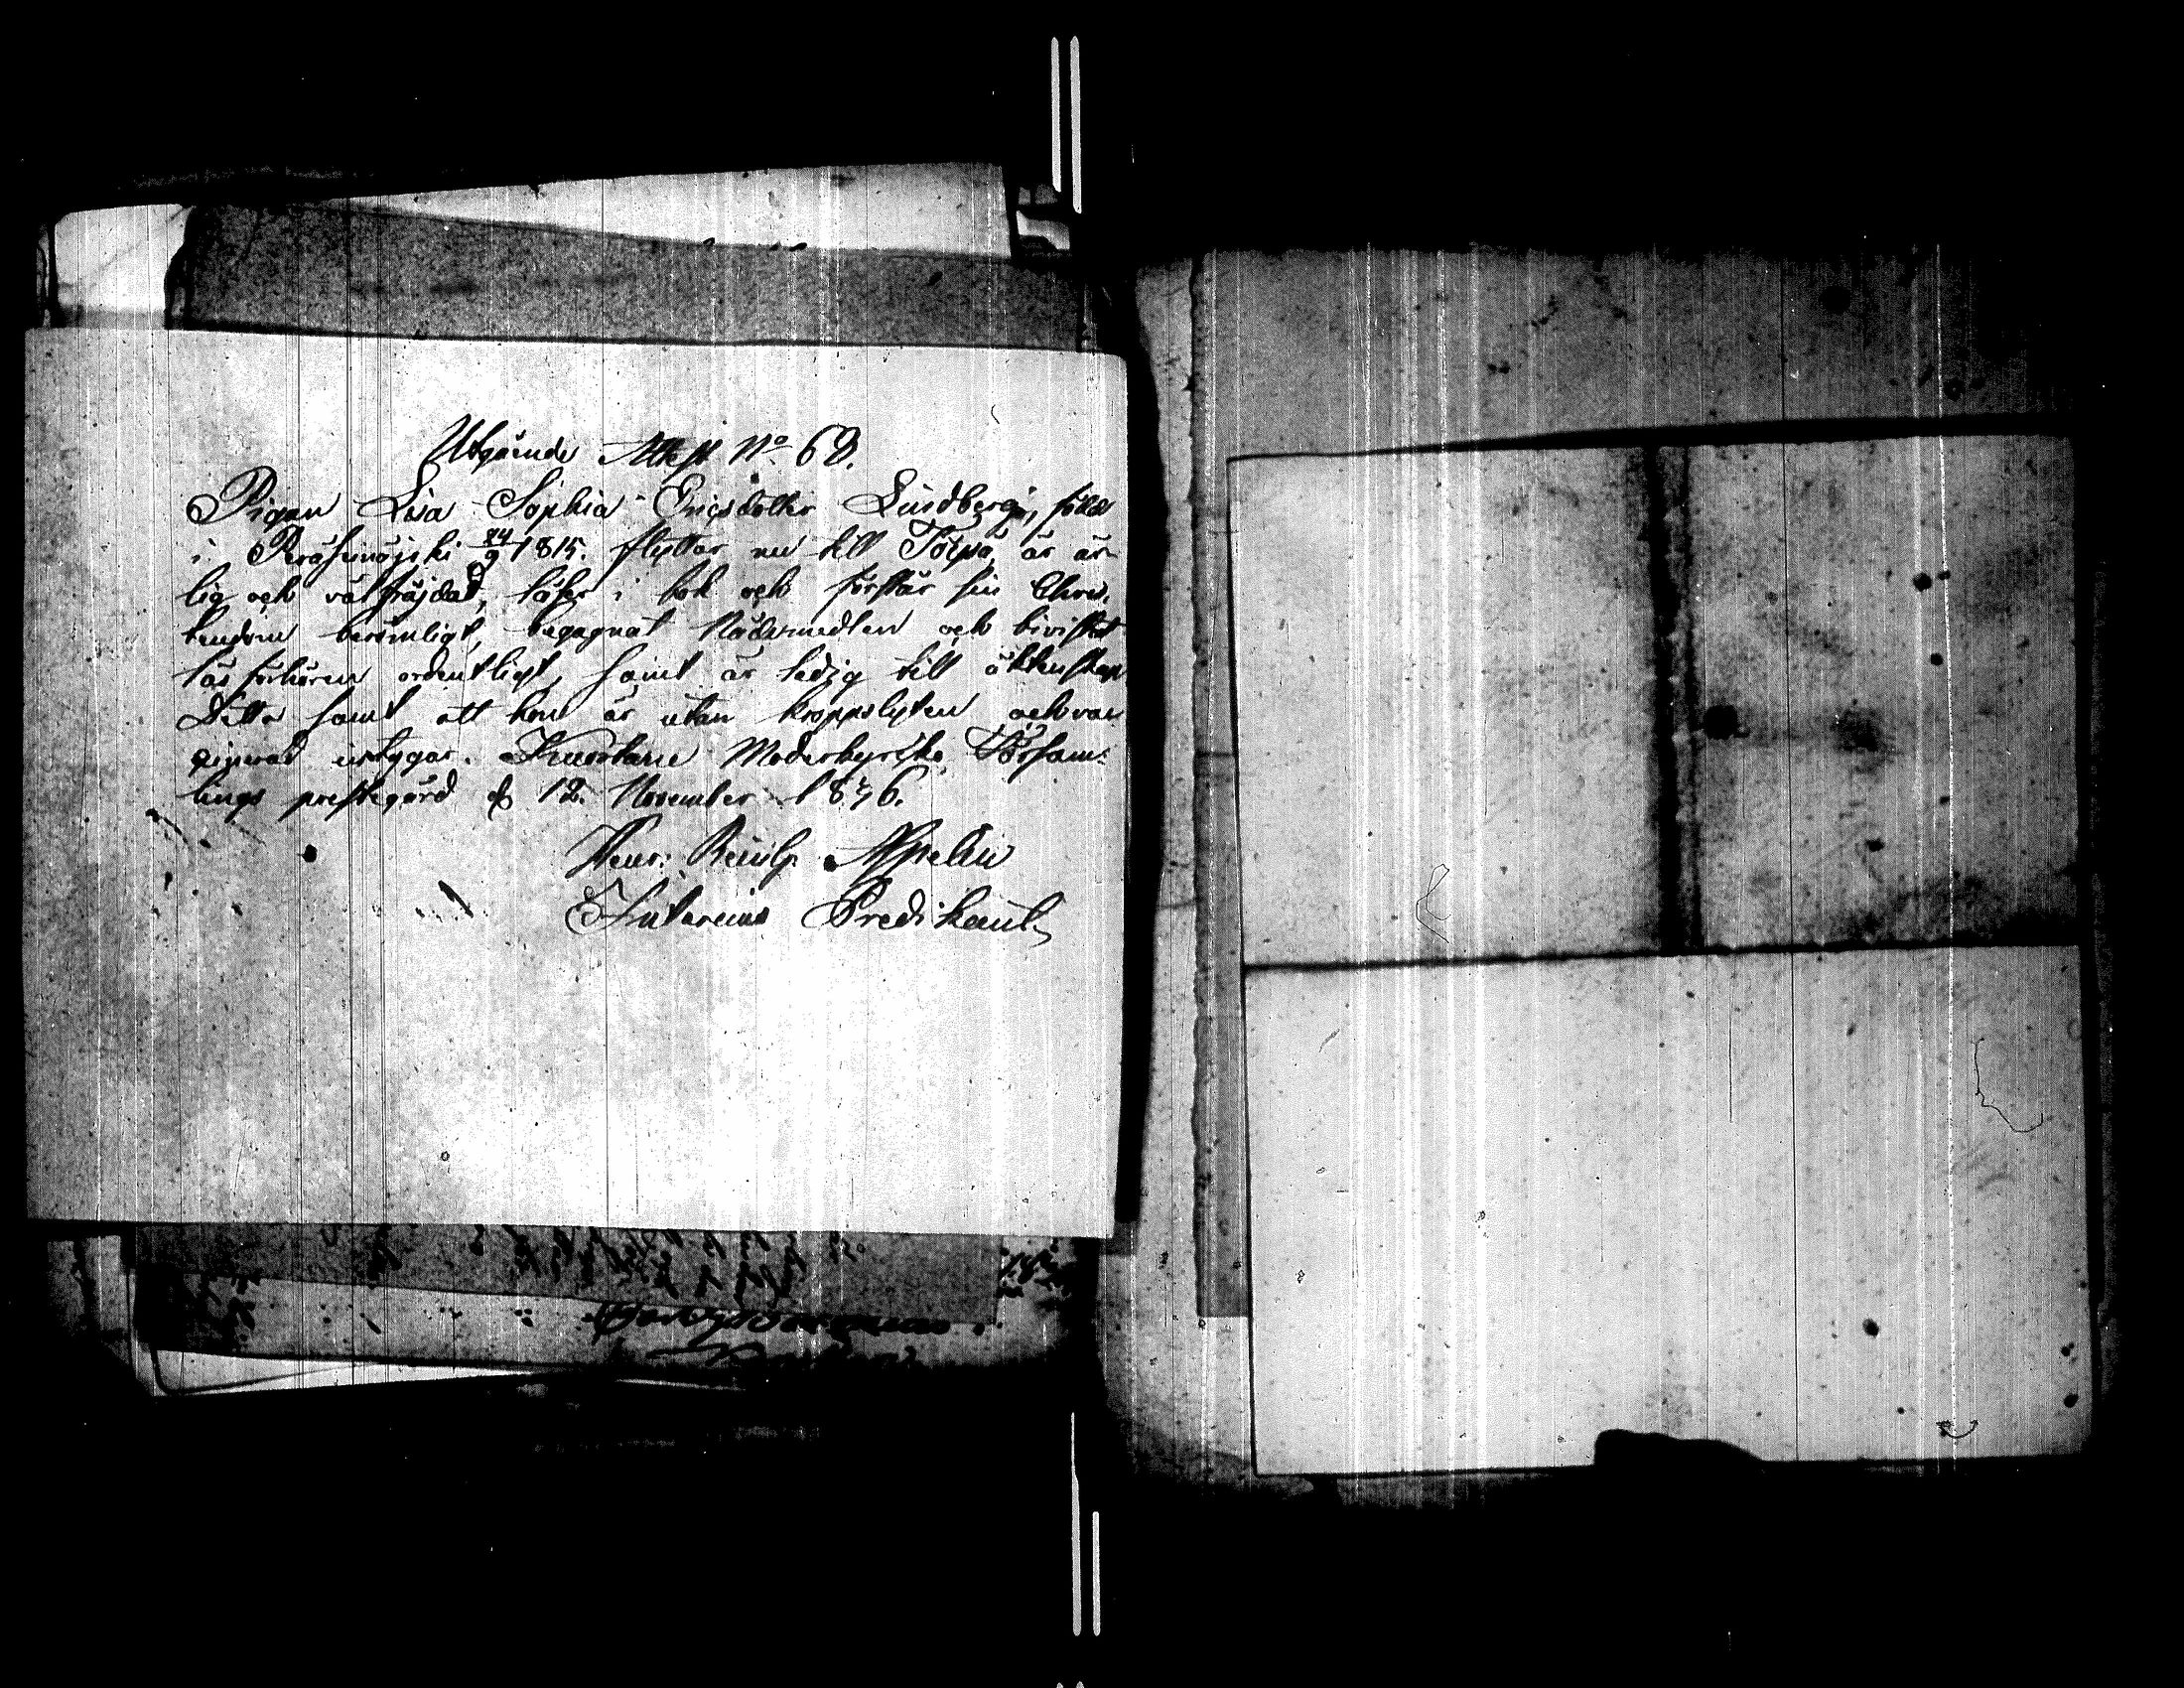 Utgående Attest No 68.
Pigan Lisa Sophia Ericsdotter Lindberg, född
i Peräseinäjoki 24/9 1815. flyttar nu till Töysä, är är-
lig och välfräjdad, läser i bok och förstår sin Chris,
tendom berömligt, begagnat Nådemedlen och bivistat
läs förhören ordentligt, samt är ledig till äktenskap
Detta samt att hon är utan kroppslyten och vac
cinerad intygar. Kuortane Moderkyrko Försam-
lings prestegård d. 12. November 1846.
Henr: Reinh. Appelin
Interims Predikant